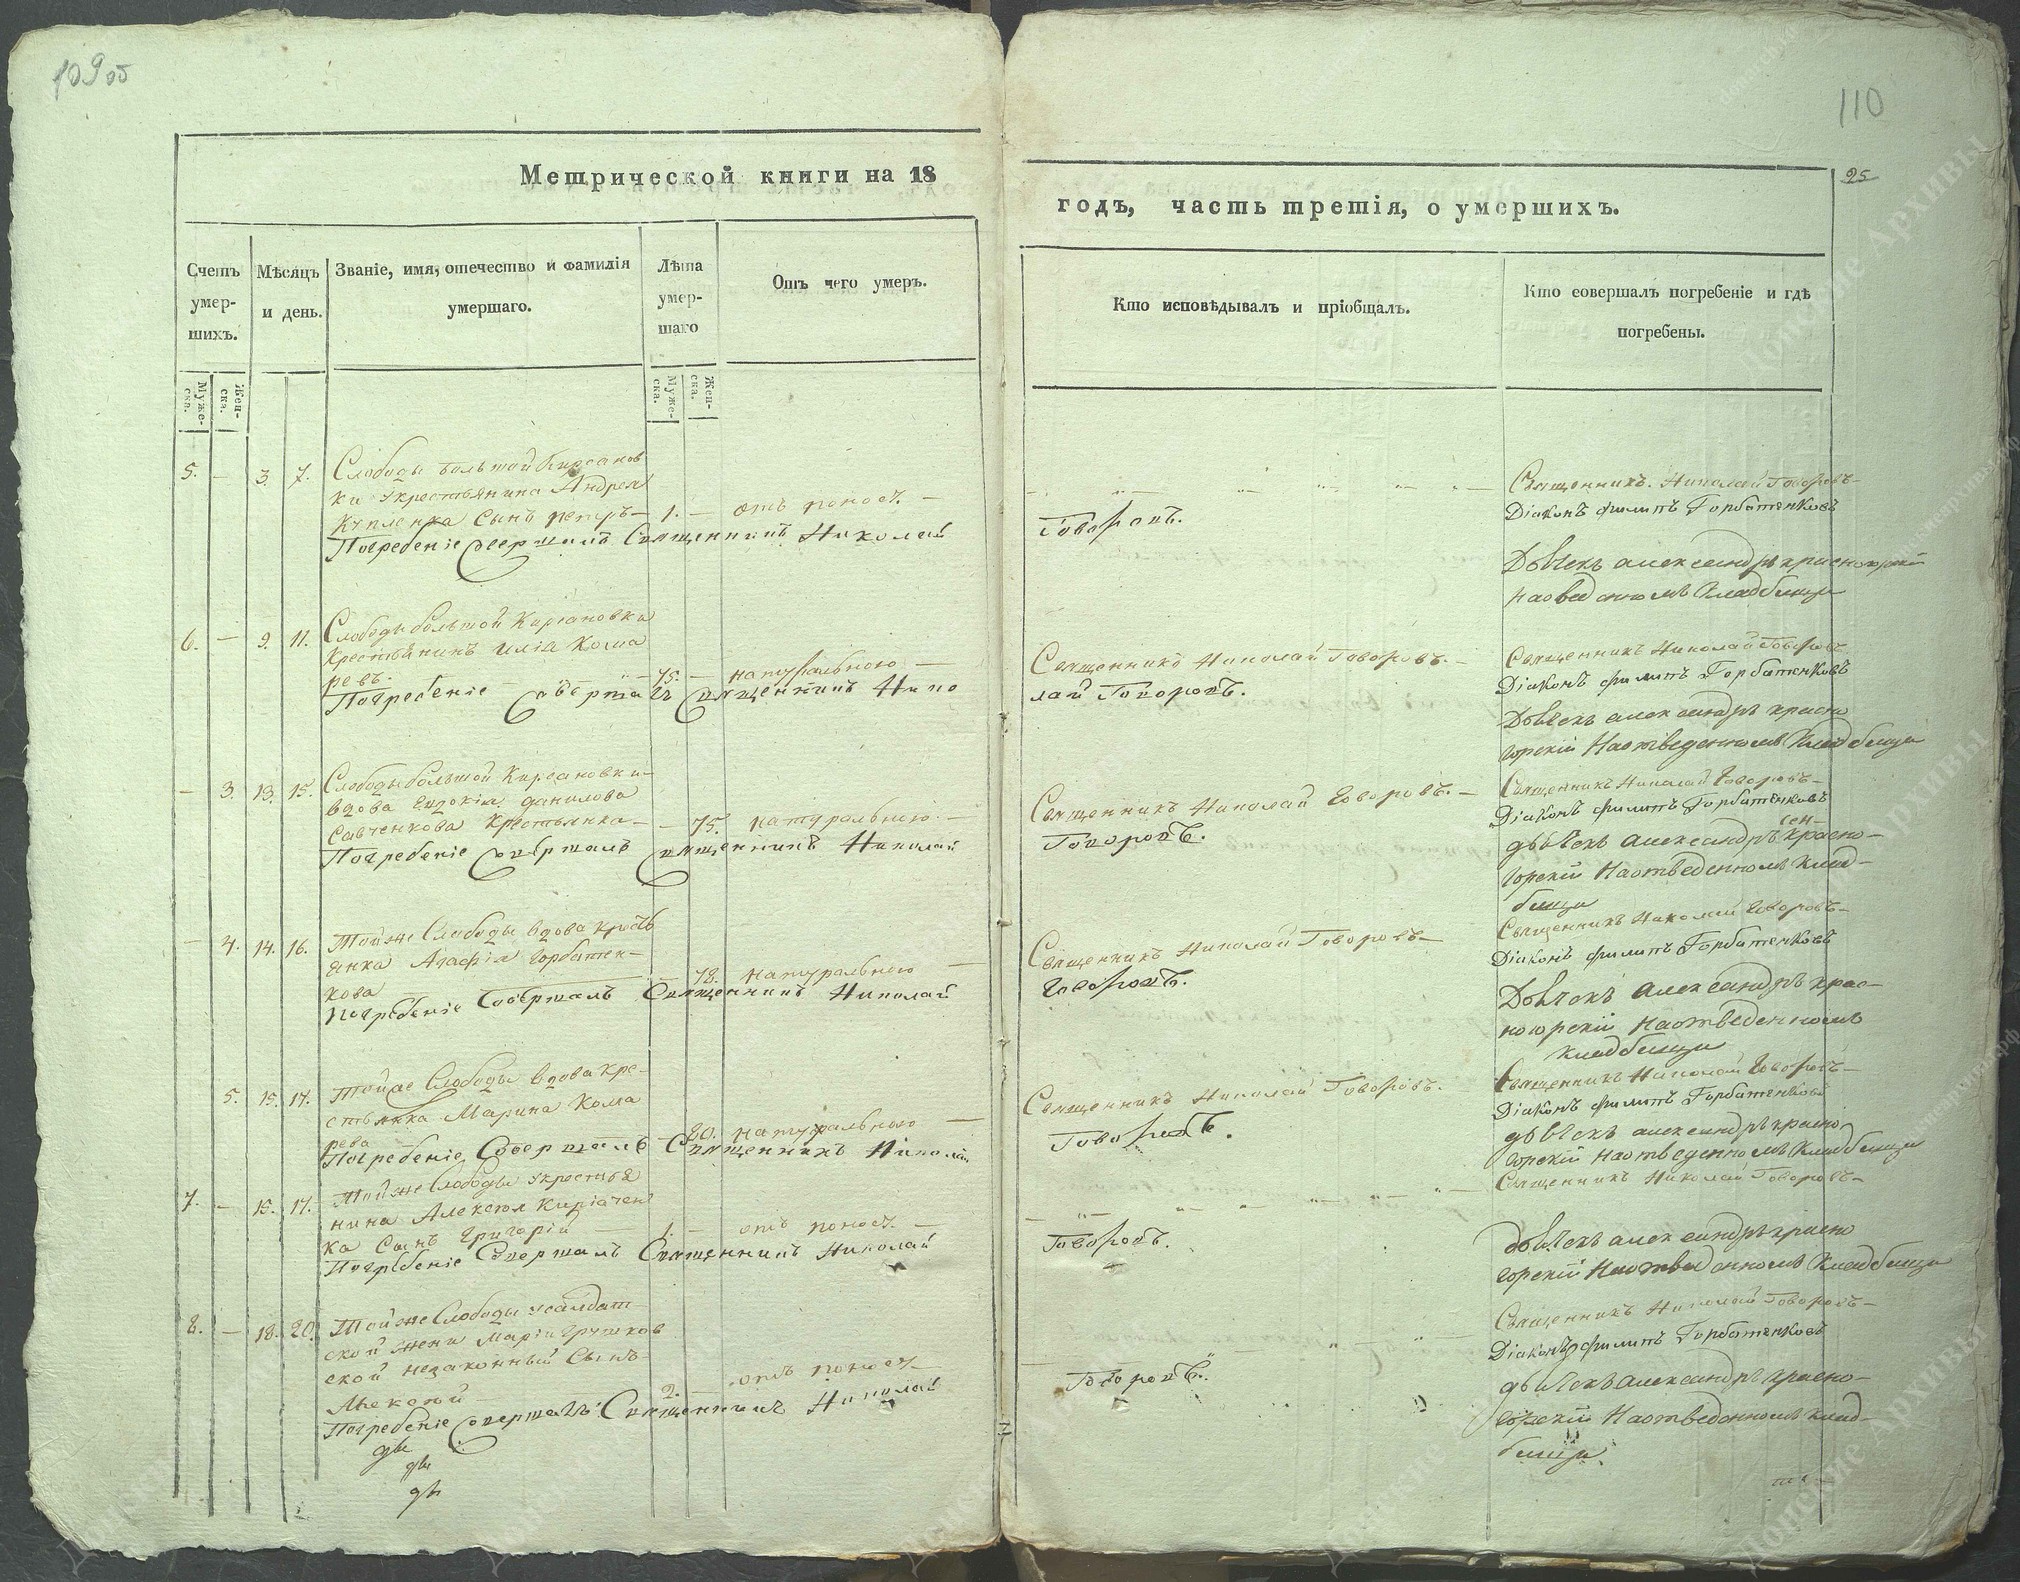 109об
110
25
Метрической книги на 18
годъ, часть третія, о умершихъ.
Счетъ умер-шихъ.
Мѣсяцъ и день.
Званіе, имя, отечество и фамилія умершаго.
Лѣта умер-шаго
Отъ чего умеръ.
Кто исповѣдывалъ и пріобщалъ.
Кто совершалъ погребеніе и гдѣ погребены.
Муже-ска.
Жен-ска.
Муже-ска.
Жен-ска.
5. — 3. 7. Слободы большой Кирсановки
ки укрестьянина Андрея
Купленка Сынъ петръ — 1. — отъ поноса. —
Погребеніе Совершалъ Священникъ Николай
Говоровъ.
Священникъ. Николай Говоровъ —
Діаконъ филипъ Горбатенковъ
Дьячекъ александръ красногорскій
на отведенномъ Кладбищи
6. — 9. 11. Слободы большой Кирсановки
Крестьянинъ Илія Кома
ревъ. — 75. — натурально —
Погребеніе Совершалъ Священникъ Нико
Священникъ Николай Говоровъ. —
лай Говоровъ.
Священникъ Николай Говоровъ
Діаконъ филипъ Горбатенковъ
Дьячекъ александръ красно
горскій На отведенномъ Кладбищи
— 3. 13. 15. Слободы большой Кирсановки —
вдова Евдокія данилова
Савченкова Крестьянка — — 75. натурально. —
Погребеніе Совершалъ Священникъ Николай
Священникъ Николай Говоровъ. —
Говоровъ.
Священникъ Николай Говоровъ —
Діаконъ филипъ Горбатенковъ
дьячекъ Александръ красно —
горскій На отведенномъ клад —
бищи
— 4. 14. 16. Тойже Слободы вдова крестъ
янка Агафія Горбатен —
кова — — 78. натурально —
Погребеніе Совершалъ Священникъ Николай
Священникъ Николай Говоровъ —
Говоровъ.
Священникъ Николай Говоровъ —
Діаконъ филипъ Горбатенковъ
Дьячекъ Александръ крас —
ногорскій На отведенномъ
кладбищи
5. 15. 17. Тойже Слободы вдова кре —
стьянка Марина Кома
рева — 80. натурально —
Погребеніе Совершалъ Священникъ Николай
Священникъ Николай Говоровъ.
Говоровъ.
Священникъ Николай Говоровъ —
Діаконъ филипъ Горбатенковъ
дьячекъ александръ красно
горскій На отведенномъ Кладбищи
7. — 15. 17. Тойже Слободы укрестья
нина Алексѣя Кирiачен
ка Сынъ Григорій — 1. — отъ поноса. —
Погребеніе Совершалъ Священникъ Николай
Говоровъ.
Священникъ Николай Говоровъ —
дьячекъ александръ красно
горскій На отведенномъ Кладбищи
8. — 18. 20. Тойже Слободы усалдат —
ской жены Маріи Грушков
ской незаконный Сынъ —
Алексѣй — 2. — отъ поноса —
Погребеніе Совершалъ Священникъ Николай
Говоровъ.
Священникъ Николай Говоровъ —
Діаконъ филипъ Горбатенковъ
дьячекъ александръ красно —
горскій На отведенномъ клад —
бищи.